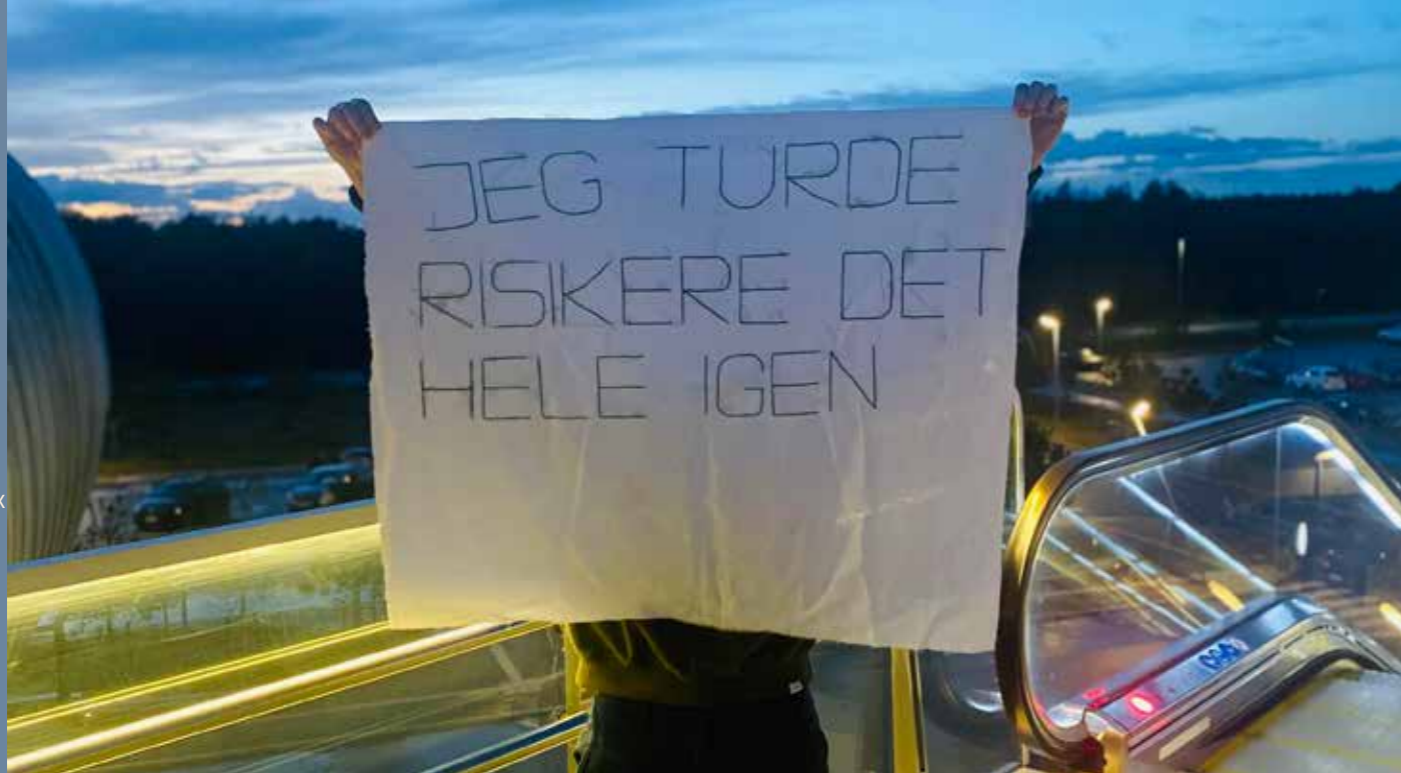 JEG TURDE
RISIKERE DET
HELE IGEN